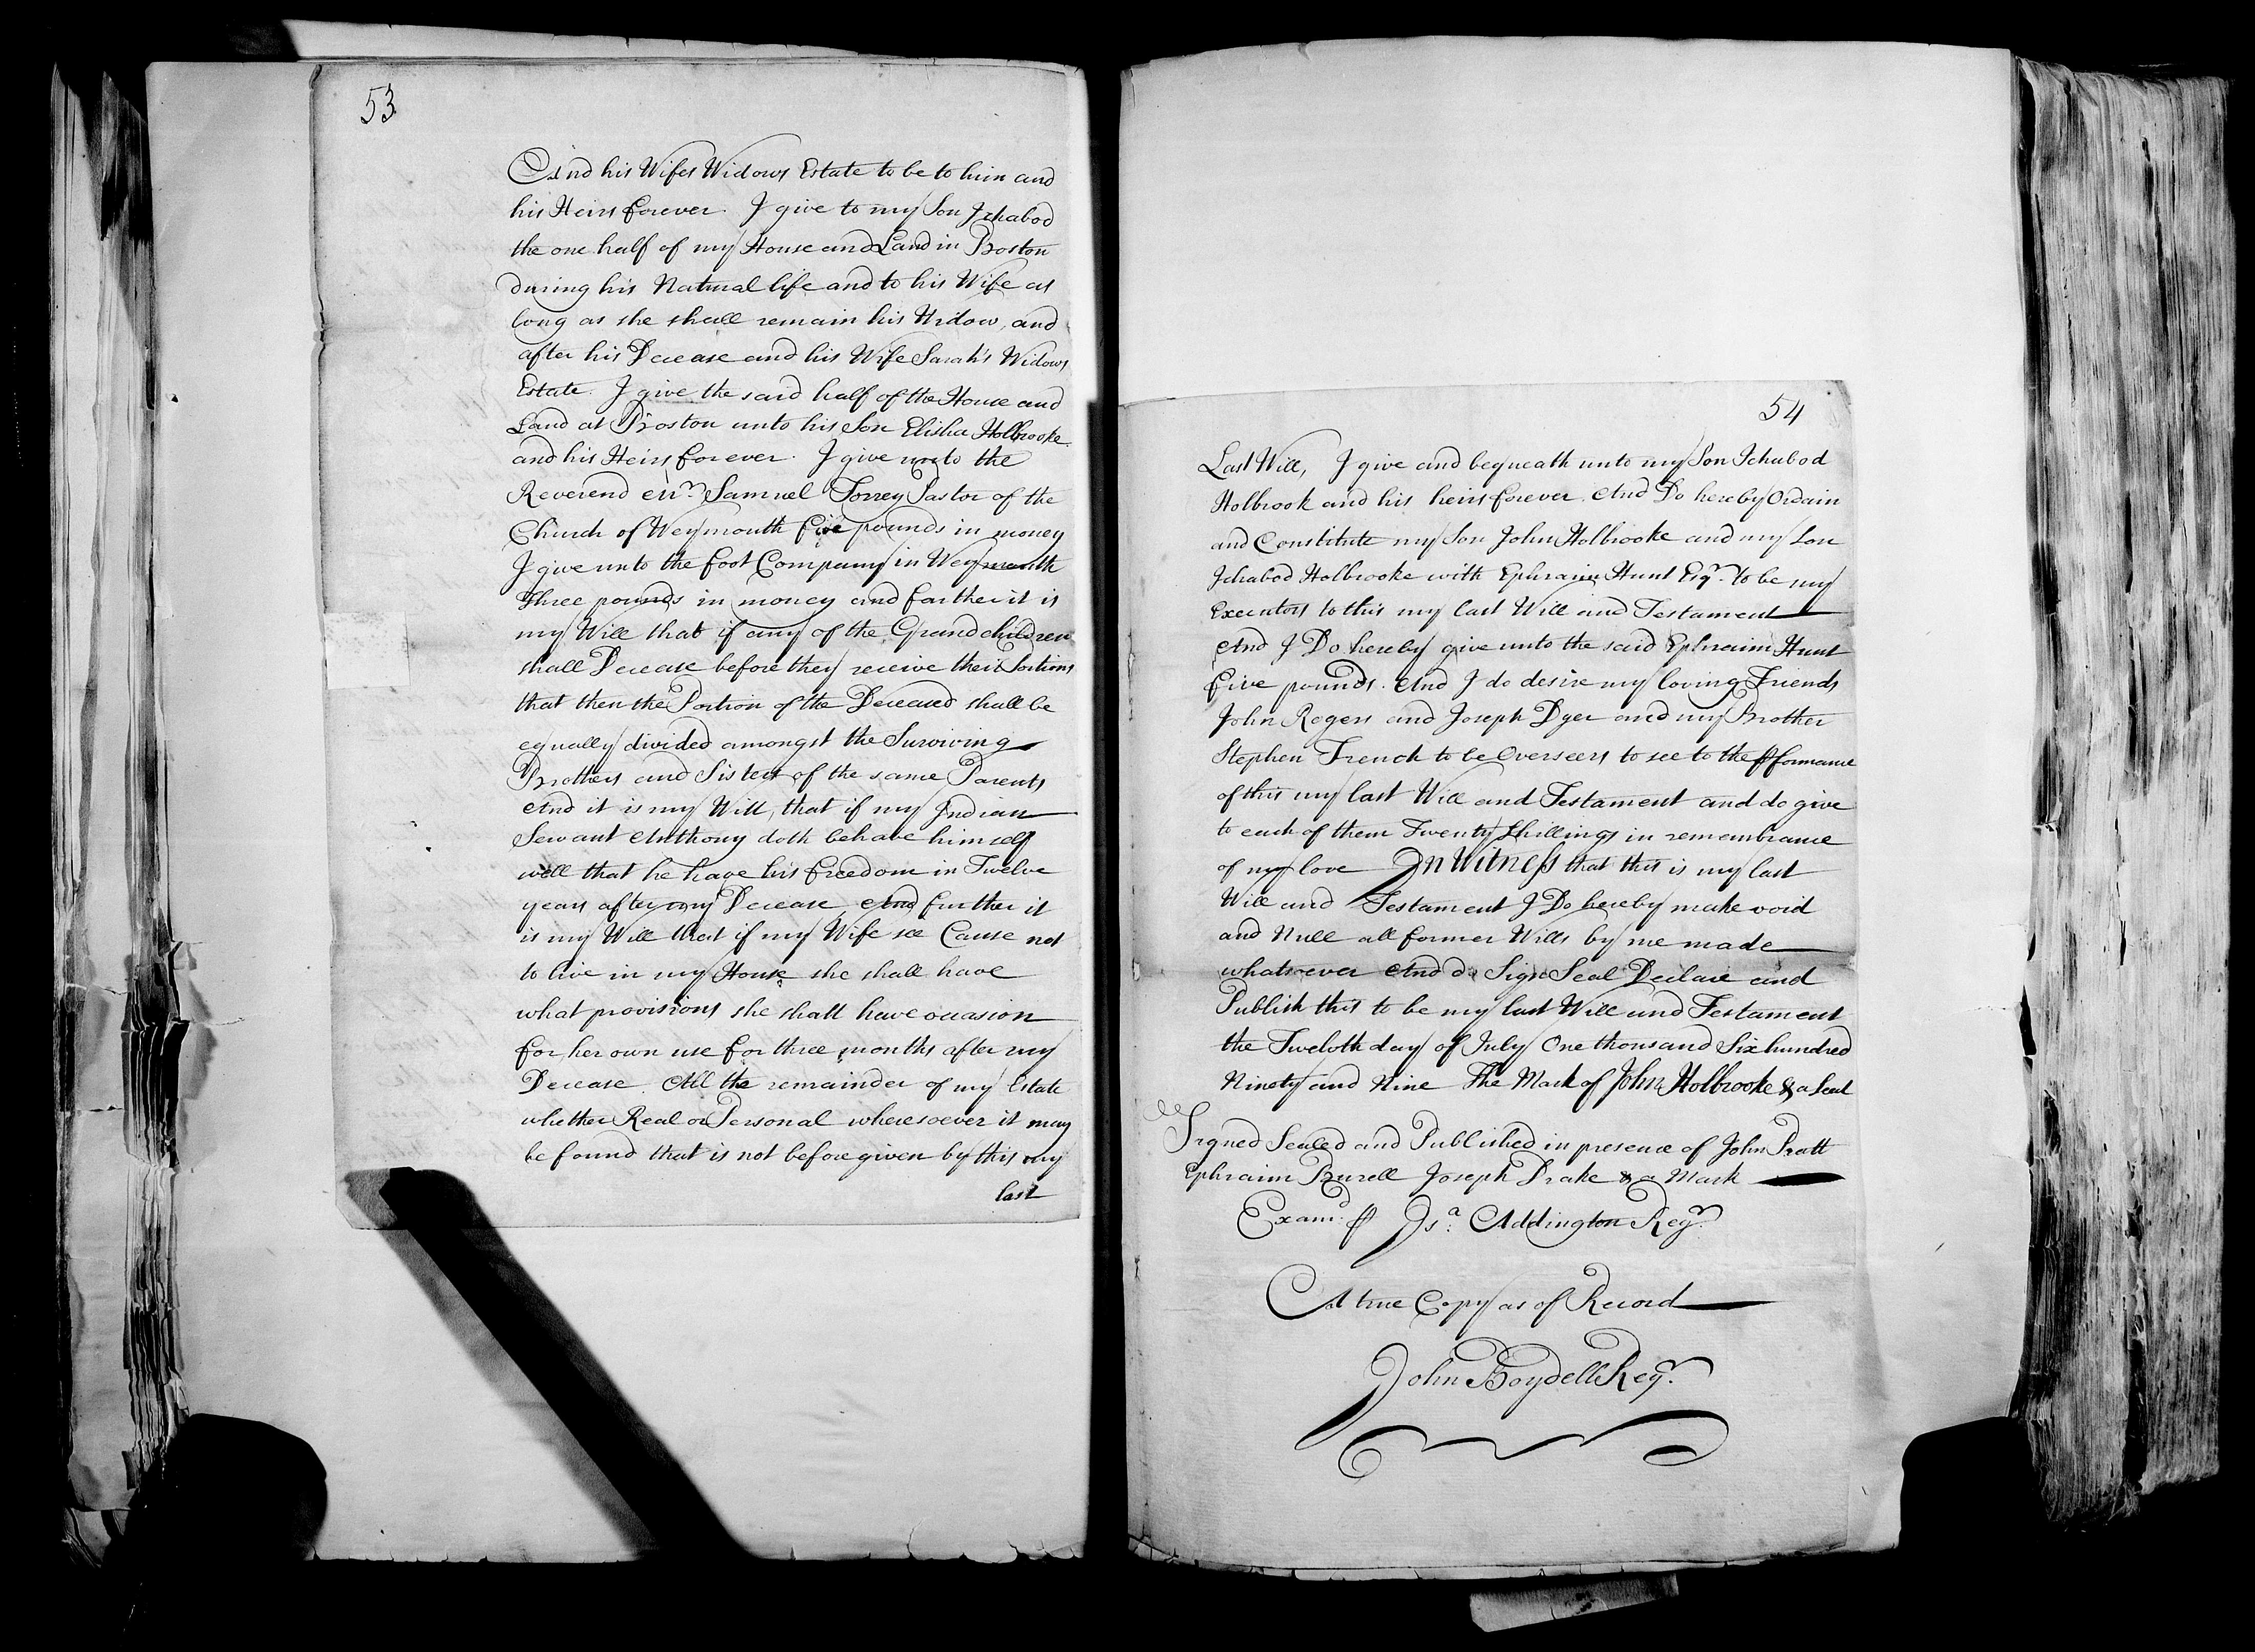 53
And his Wifes Widows Estate to be to him and
his Heirs forever. I give to my Son Ichabod
the one half of my House and Land in Boston
during his Natural life and to his Wife as
long as she shall remain his Widow, and
after his Decease and his Wife Sarah's Widows
Estate. I give the said half of the House and
Land at Boston unto his Son Elisha Holbrooke
and his Heirs forever. I give unto the
Reverend Mr. Samuel Torrey Pastor of the
Church of Weymouth five pounds in money
I give unto the foot Company in Weymouth
Three pounds in money and farther it is
my Will that if any of the Grandchildren
shall Decease before they receive their Portions
that then the Portion of the Deceased shall be
equally divided amongst the Surviving
Brothers and Sisters of the same Parents
And it is my Will, that if my Indian
Servant Anthony doth behave himself
well that he have his freedom in Twelve
years after my Decease, And further it
is my Will that if my Wife see Cause not
to live in my House she shall have
what provisions she shall have occasion
for her own use for three months after my
Decease. All the remainder of my Estate
whether Real or Personal wheresoever it may
be found that is not before given by this my
last
54
Last Will, I give and bequeath unto my Son Ichabod
Holbrook and his heirs forever. And Do hereby Ordain
and Constitute my Son John Holbrooke and my Son
Ichabod Holbrooke with Ephraim Hunt Esqr. to be my
Executors to this my last Will and Testament
And I Do hereby give unto the said Ephraim Hunt
five pounds. And I do desire my loving Friends
John Rogers and Joseph Dyer and my Brother
Stephen French to be Overseers to see to the pformance
of this my last Will and Testament and do give
to each of them Twenty shillings in remembrance
of my love In Witness that this is my last
Will and Testament I Do hereby make void
and Null all former Wills by me made
whatsoever And do Sign Seal Declare and
Publish this to be my last Will and Testament
the Twelvth day of July One thousand Six hundred
Ninety and Nine The Mark of John Holbrooke & a Seal
Signed Sealed and Published in presence of John Pratt
Ephraim Burell Joseph Drake & a Mark
Examd. p Isa. Addington Regr.
A true Copy as of Record
John Boydell Regr.